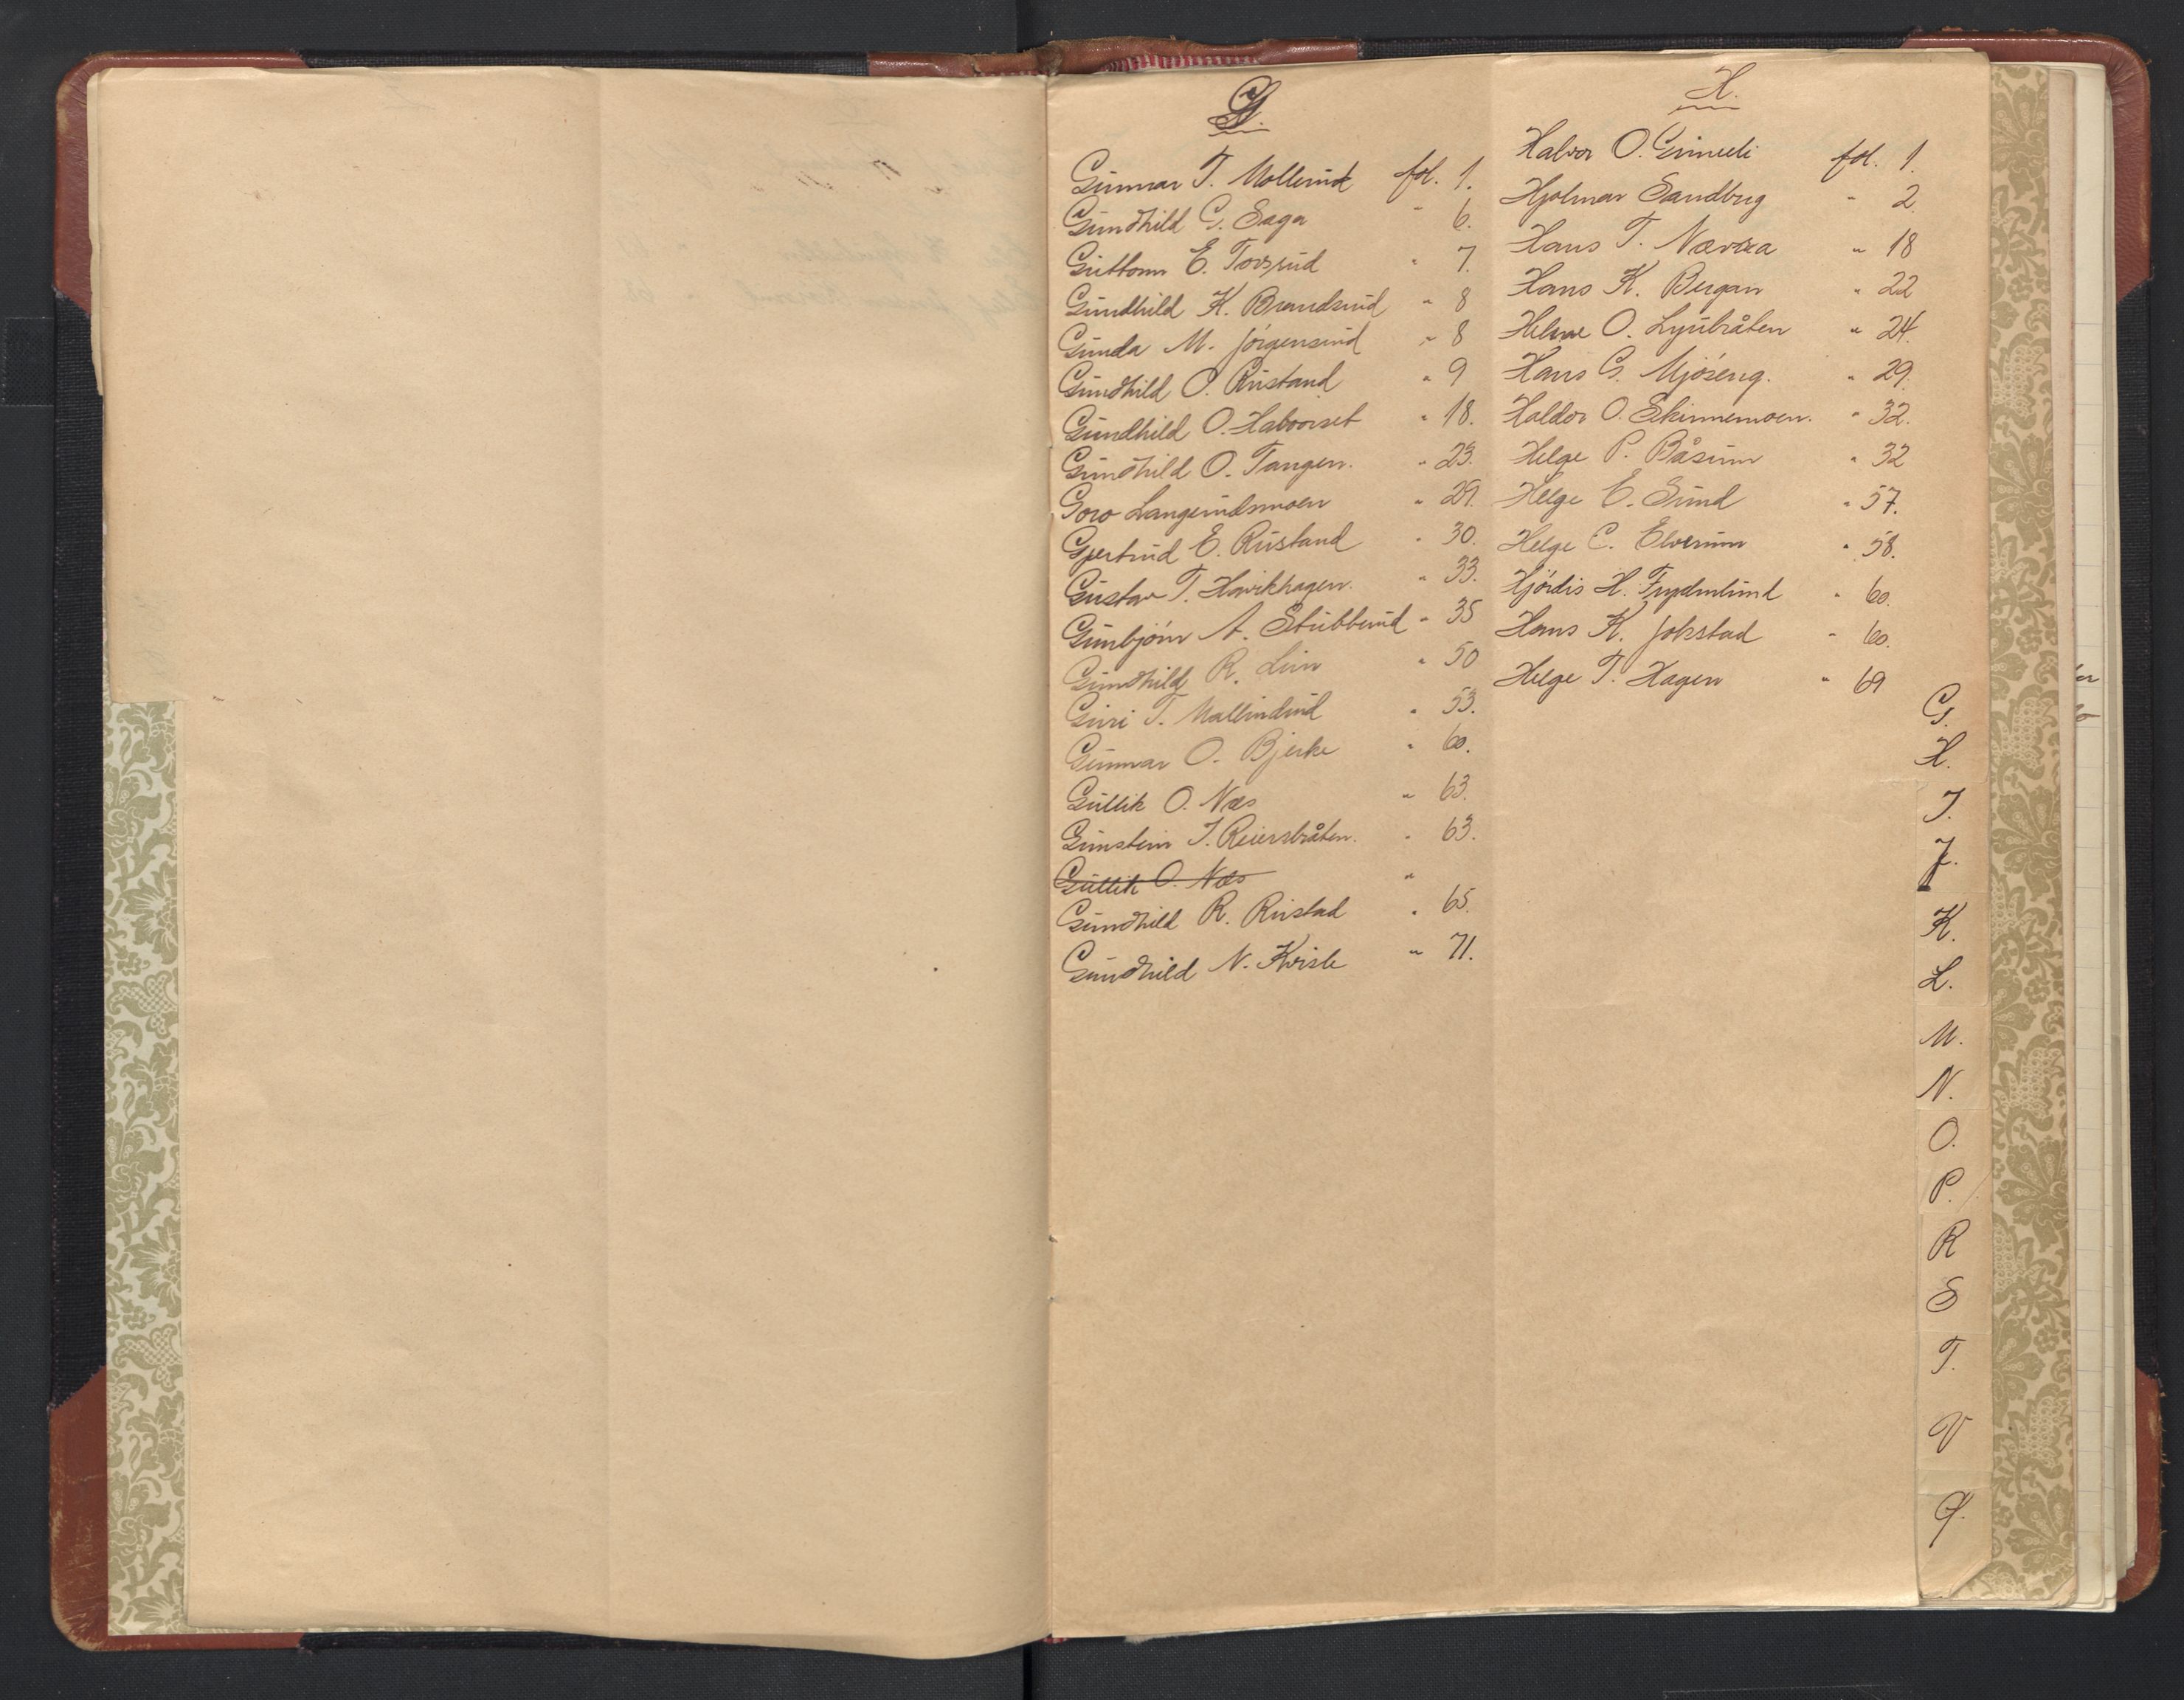 G.
Gunnar T. Mollerud fol. 1.
Gundhild G. Saga " 6.
Guttorm E. Torsrud " 7.
Gundhild K. Brandsrud " 8
Gunda M. Jörgensrud " 8
Gundhild O. Rustand " 9
Gundhild O. Halvorset " 18.
Gundhild O. Tangen. " 23.
Goro Langerudsmoen " 29.
Gjertrud E. Rustand " 30.
Gustav T. Havikhagen. " 33.
Gunbjörn A. Stubberud " 35
Gundhild R. Lein " 50
Guri T. " 53.
Gunnar O. Bjerke " 60.
Gullik O. Næs " 63.
Gunstein T. Reiersbråten. " 63.
Gullik O. Næs "
Gundhild R. Rustad " 65.
Gundhild N. Kvisle " 71.
H.
Halvor O. Grimeli fol. 1.
Hjalmar Sandbrg " 2.
Hans T. Nævra " 18
Hans K. Bergan " 22
Helene O. Ljubråten " 24.
Hans G. Mjöseng. " 29.
Haldor O. Skinnemoen. " 32.
Helge P. Båsum " 32
Helge E. Sund " 57.
Helge C. Elverum " 58.
Hjördis H. Frydenlund " 60.
Hans K. Jokstad " 60.
Helge T. Hagen " 69
G.
H.
I.
J.
K.
L.
M.
N.
O.
P.
R
S
T.
V